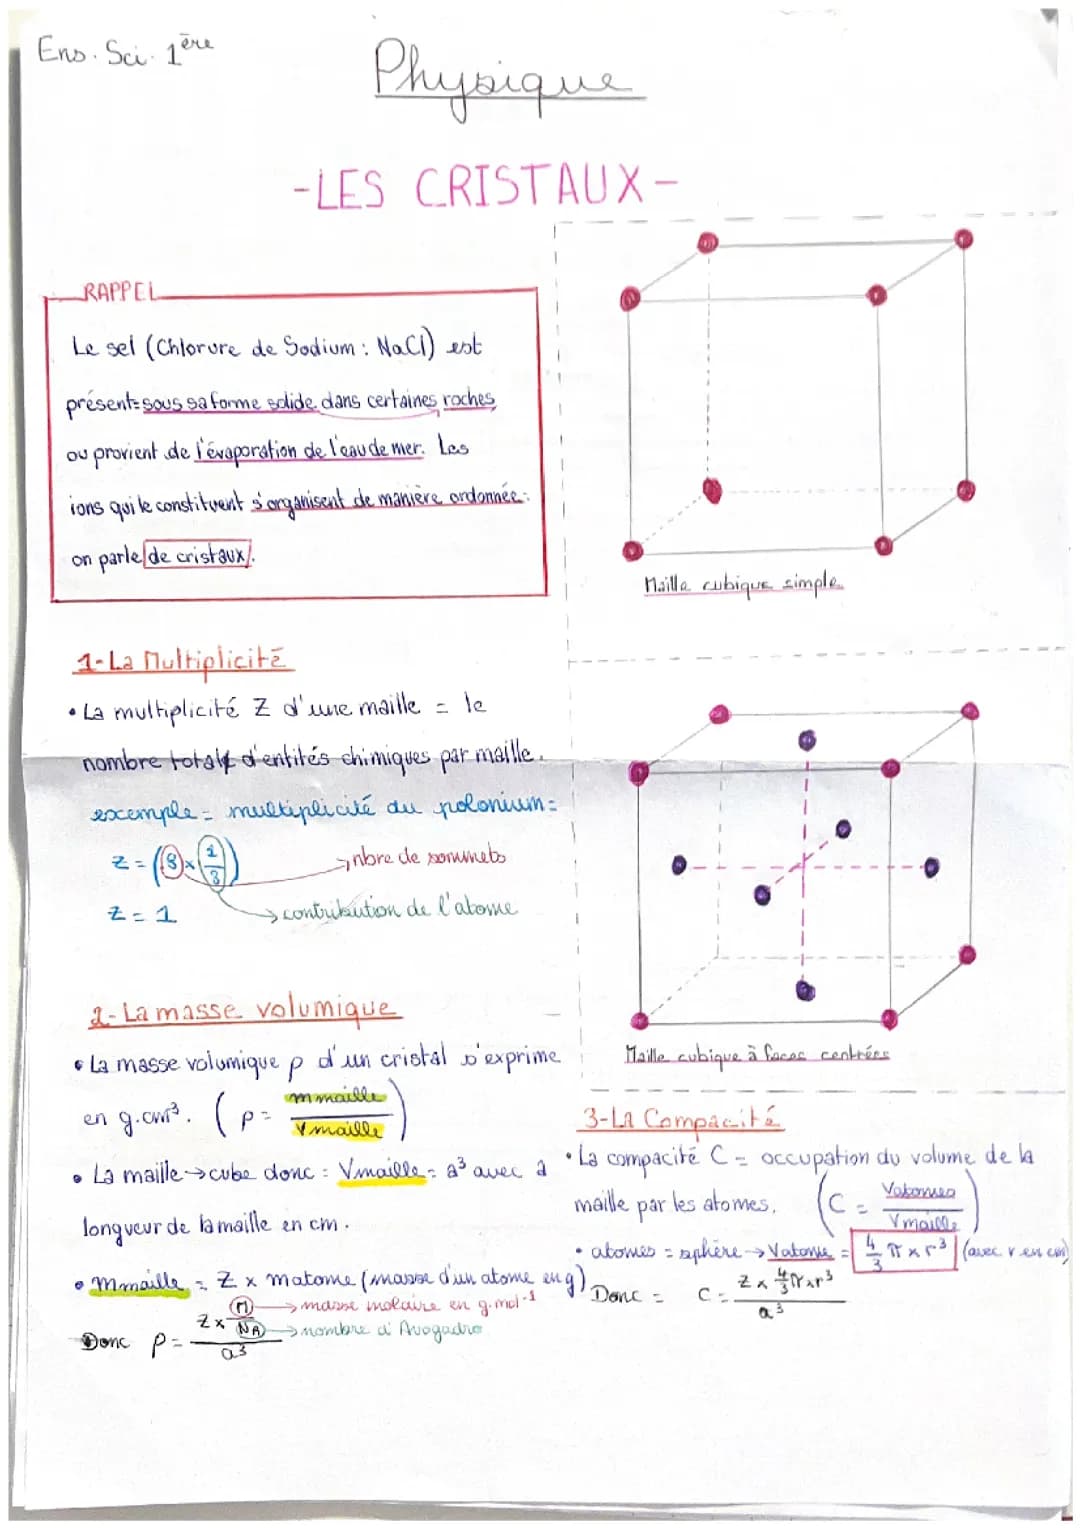 Ens. Sci. 1ère
Physique
-LES CRISTAUX-
RAPPEL
Le sel (Chlorure de Sodium : NaCl) est
présent sous sa forme solide dans certaines roches
ou provient de l'évaporation de l'eau de mer. Les
ions qui le constituent s'organisent de manière ordonnée :
on parle de cristaux.
Maille cubique simple
1-La Multiplicité
• La multiplicité Z d'une maille = le
nombre total d'entités chimiques par maille.
exemple = multiplicité du polonium =
Z = (8 × 1/8)
→ nbre de sommets
Z = 1
→ contribution de l'atome
Maille cubique à faces centrées
2-La masse volumique
• La masse volumique ρ d'un cristal s'exprime
en g.cm³. (ρ = mmaille / Vmaille)
• La maille → cube donc : Vmaille = a³ avec a
longueur de la maille en cm.
• Mmaille = Z × matome (masse d'un atome en g)
M → masse molaire en g.mol⁻¹
NA → nombre d'Avogadro
Donc ρ = (Z × M/NA) / a³
3-La Compacité
• La compacité C = occupation du volume de la
maille par les atomes. (C = Vatomes / Vmaille)
• atomes = sphère → Vatome = 4/3 π × r³ (avec r en cm)
Donc = C = (Z × 4/3 π × r³) / a³